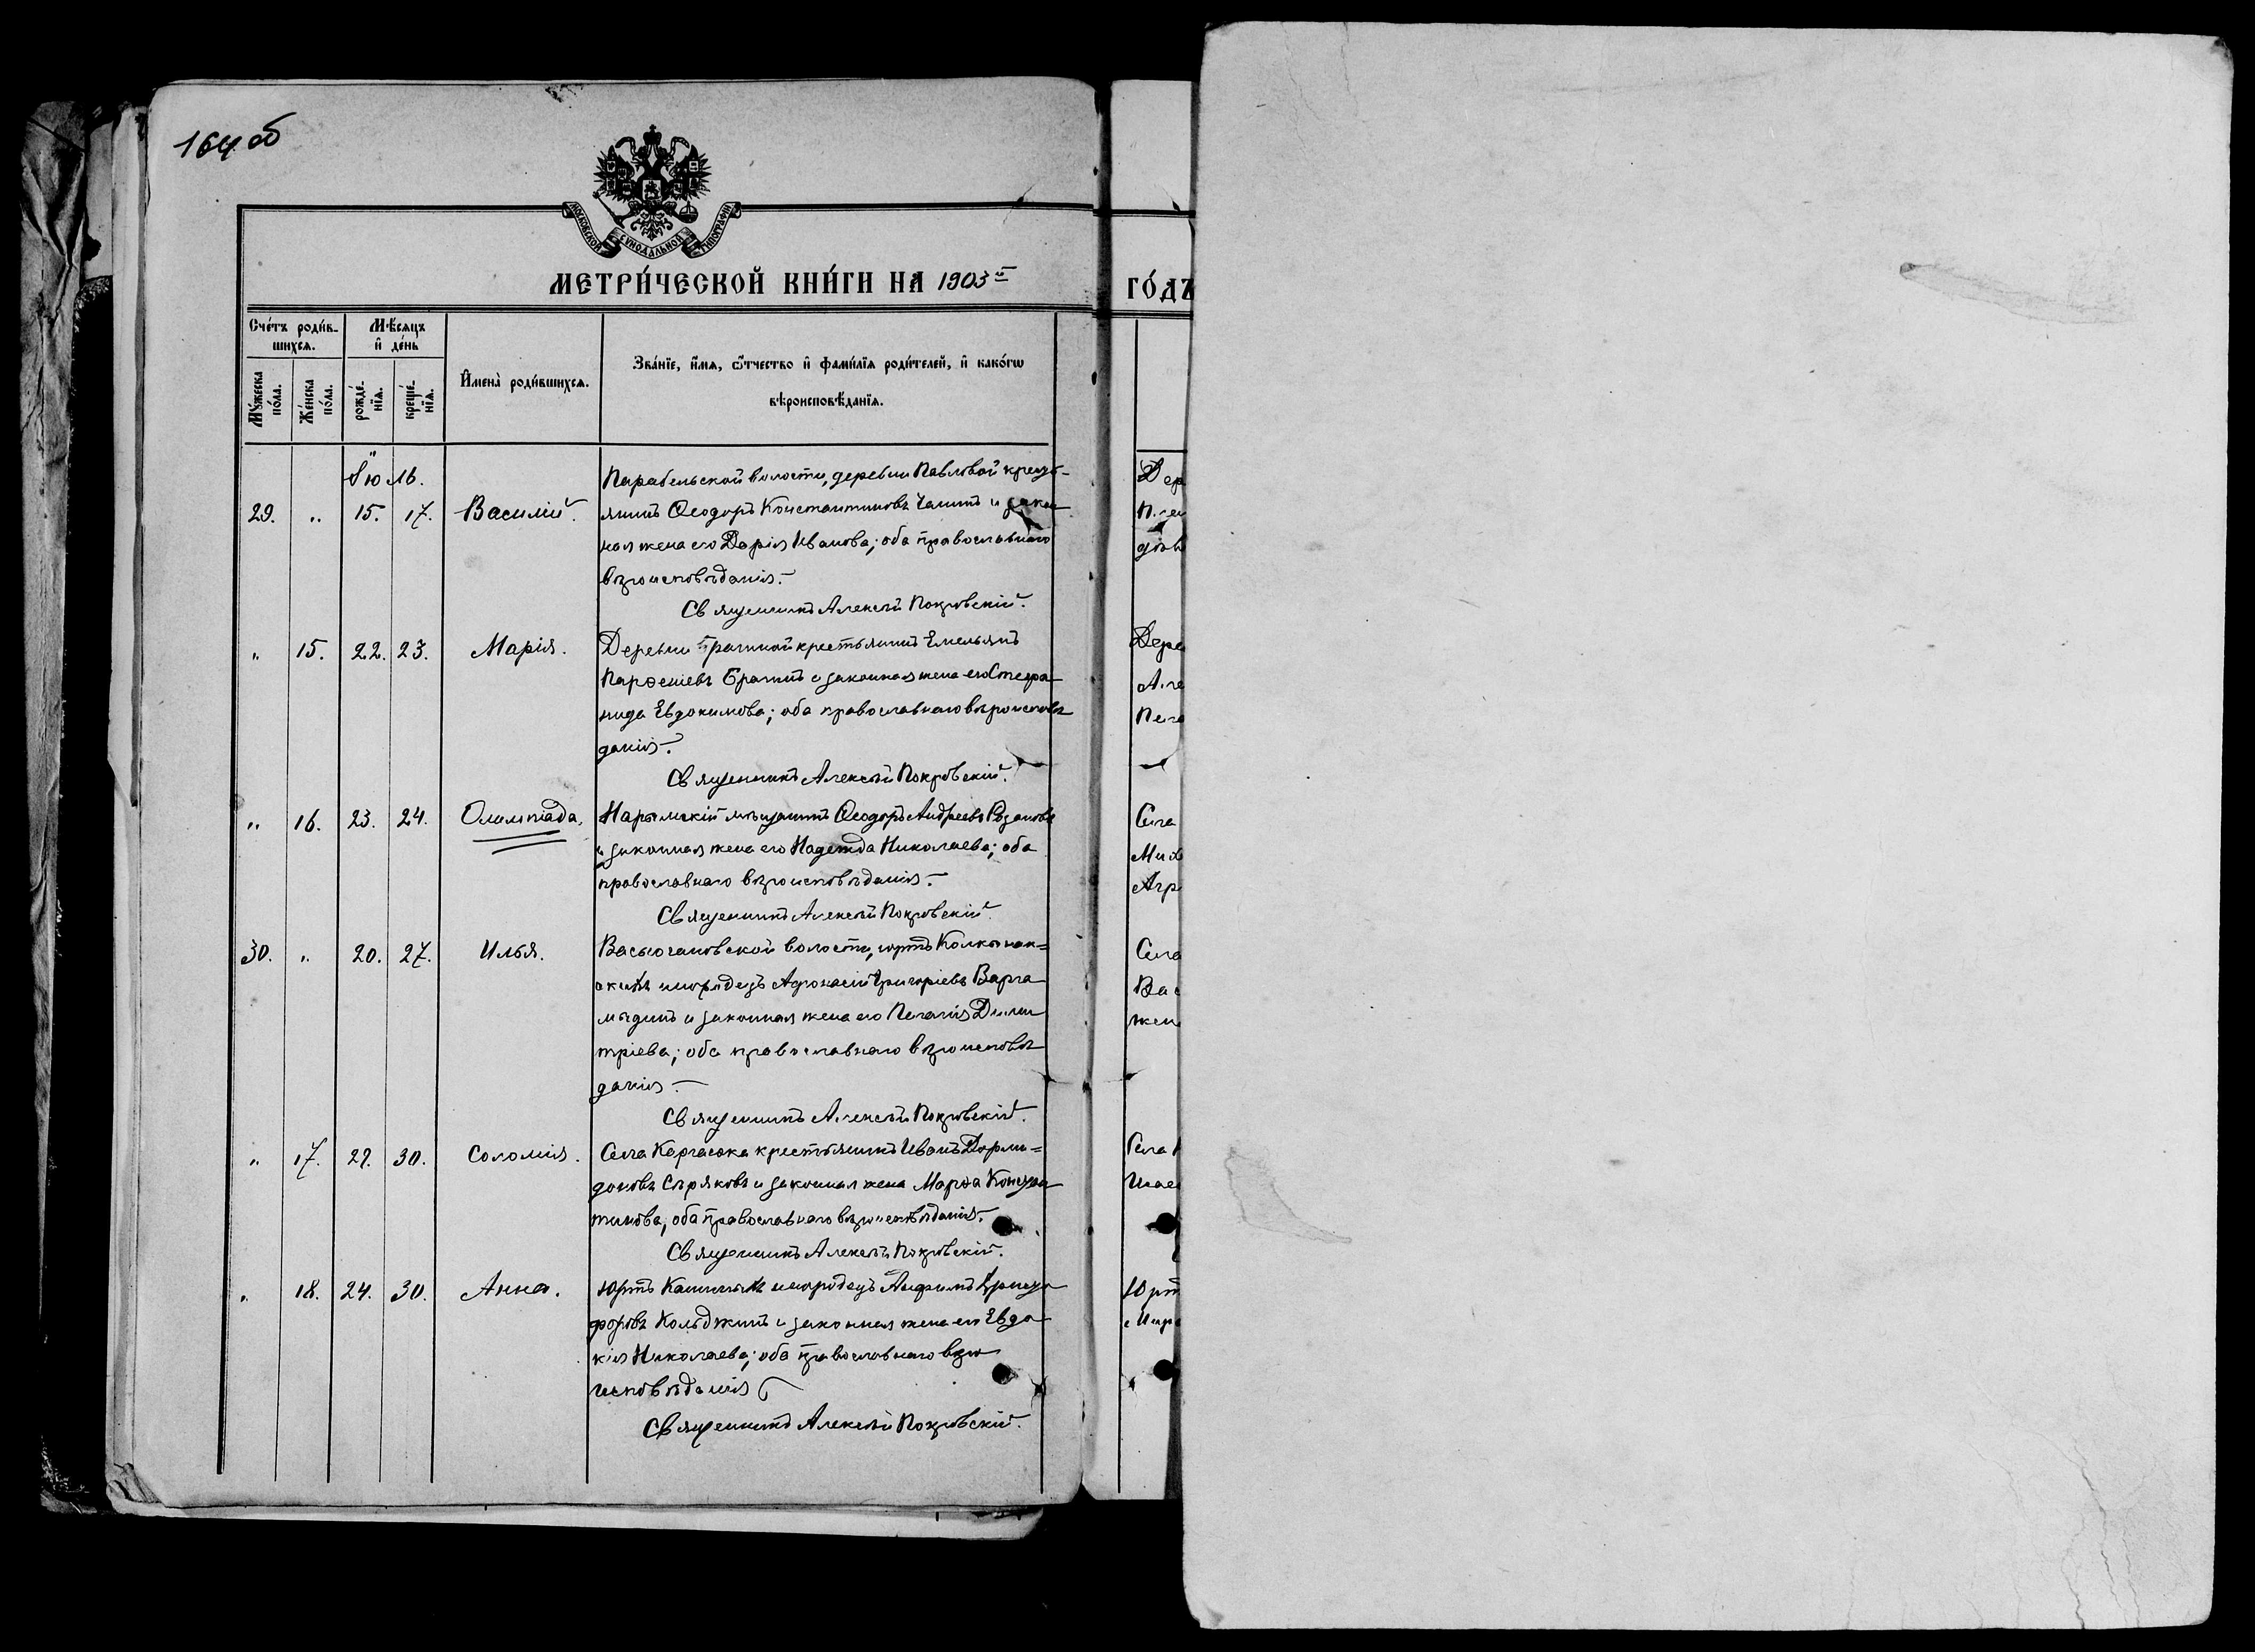 164 об
МОСКОВСКОЙ СѴНОДАЛЬНОЙ ТИПОГРАФІИ
МЕТРИ́ЧЕСКОЙ КНИ́ГИ НА 1903й
ГО́ДЪ
Сче́тъ роди́в-
шихся.
Мѣ́сяцъ
и де́нь
Мꙋ́жеска
по́ла.
Же́нска
по́ла.
рожде́-
нїя.
креще́-
нїя.
Имена̀ роди́вшихся.
Зва́нїе, и́мя, ѻ́тчество и фами́лїя роди́телей, и како́гѡ
вѣроисповѣ́данїя.
Іюль.
Парабельской волости, деревни Павловой кресть-
29. „ 15. 17. Василій. янинъ Ѳеодоръ Константиновъ Чанинъ и закон
ная жена его Дарія Иванова; оба православнаго
вѣроисповѣданія.–
Священникъ Алексѣй Покровскій.
„ 15. 22. 23. Марія. Деревни крестьянинъ Емельянъ
Парѳеніевъ и законная жена его Стефа
нида Евдокимова; оба православнаго вѣроисповѣ
данія.–
Священникъ Алексѣй Покровскій.
„ 16. 23. 24. Олимпіада. Нарымскій мѣщанинъ Ѳеодоръ Андреевъ Родюковъ
и законная жена его Надежда Николаева; оба
православнаго вѣроисповѣданія.–
Священникъ Алексѣй Покровскій.
30. „ 20. 27. Илья. Васюгановской волости, юртъ Колкынак=
скихъ инородецъ Афонасій Григоріевъ Варга
мѣдинъ и законная жена его Пелагія Дими
тріева; оба православнаго вѣроисповѣ
данія.–
Священникъ Алексѣй Покровскій.
„ 17. 29. 30. Соломія. Села Каргасока крестьянинъ Иванъ Дорми=
доновъ Сѣряковъ и законная жена Марѳа Констан
тинова, оба православнаго вѣроисповѣданія.
Священникъ Алексѣй Покровскій.
„ 18. 24. 30. Анна. Юртъ инородецъ Анфимъ Христо
форовъ и законная жена его Евдо
кія Николаева; оба православнаго вѣро
исповѣданія
Священникъ Алексѣй Покровскій.